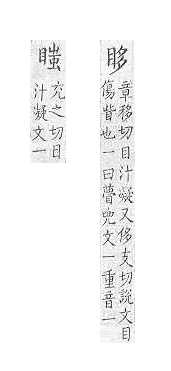 眵
章移切目汁凝又侈支切說文目
傷眥也一曰瞢兜文一重音一
充之切目
汁凝文一